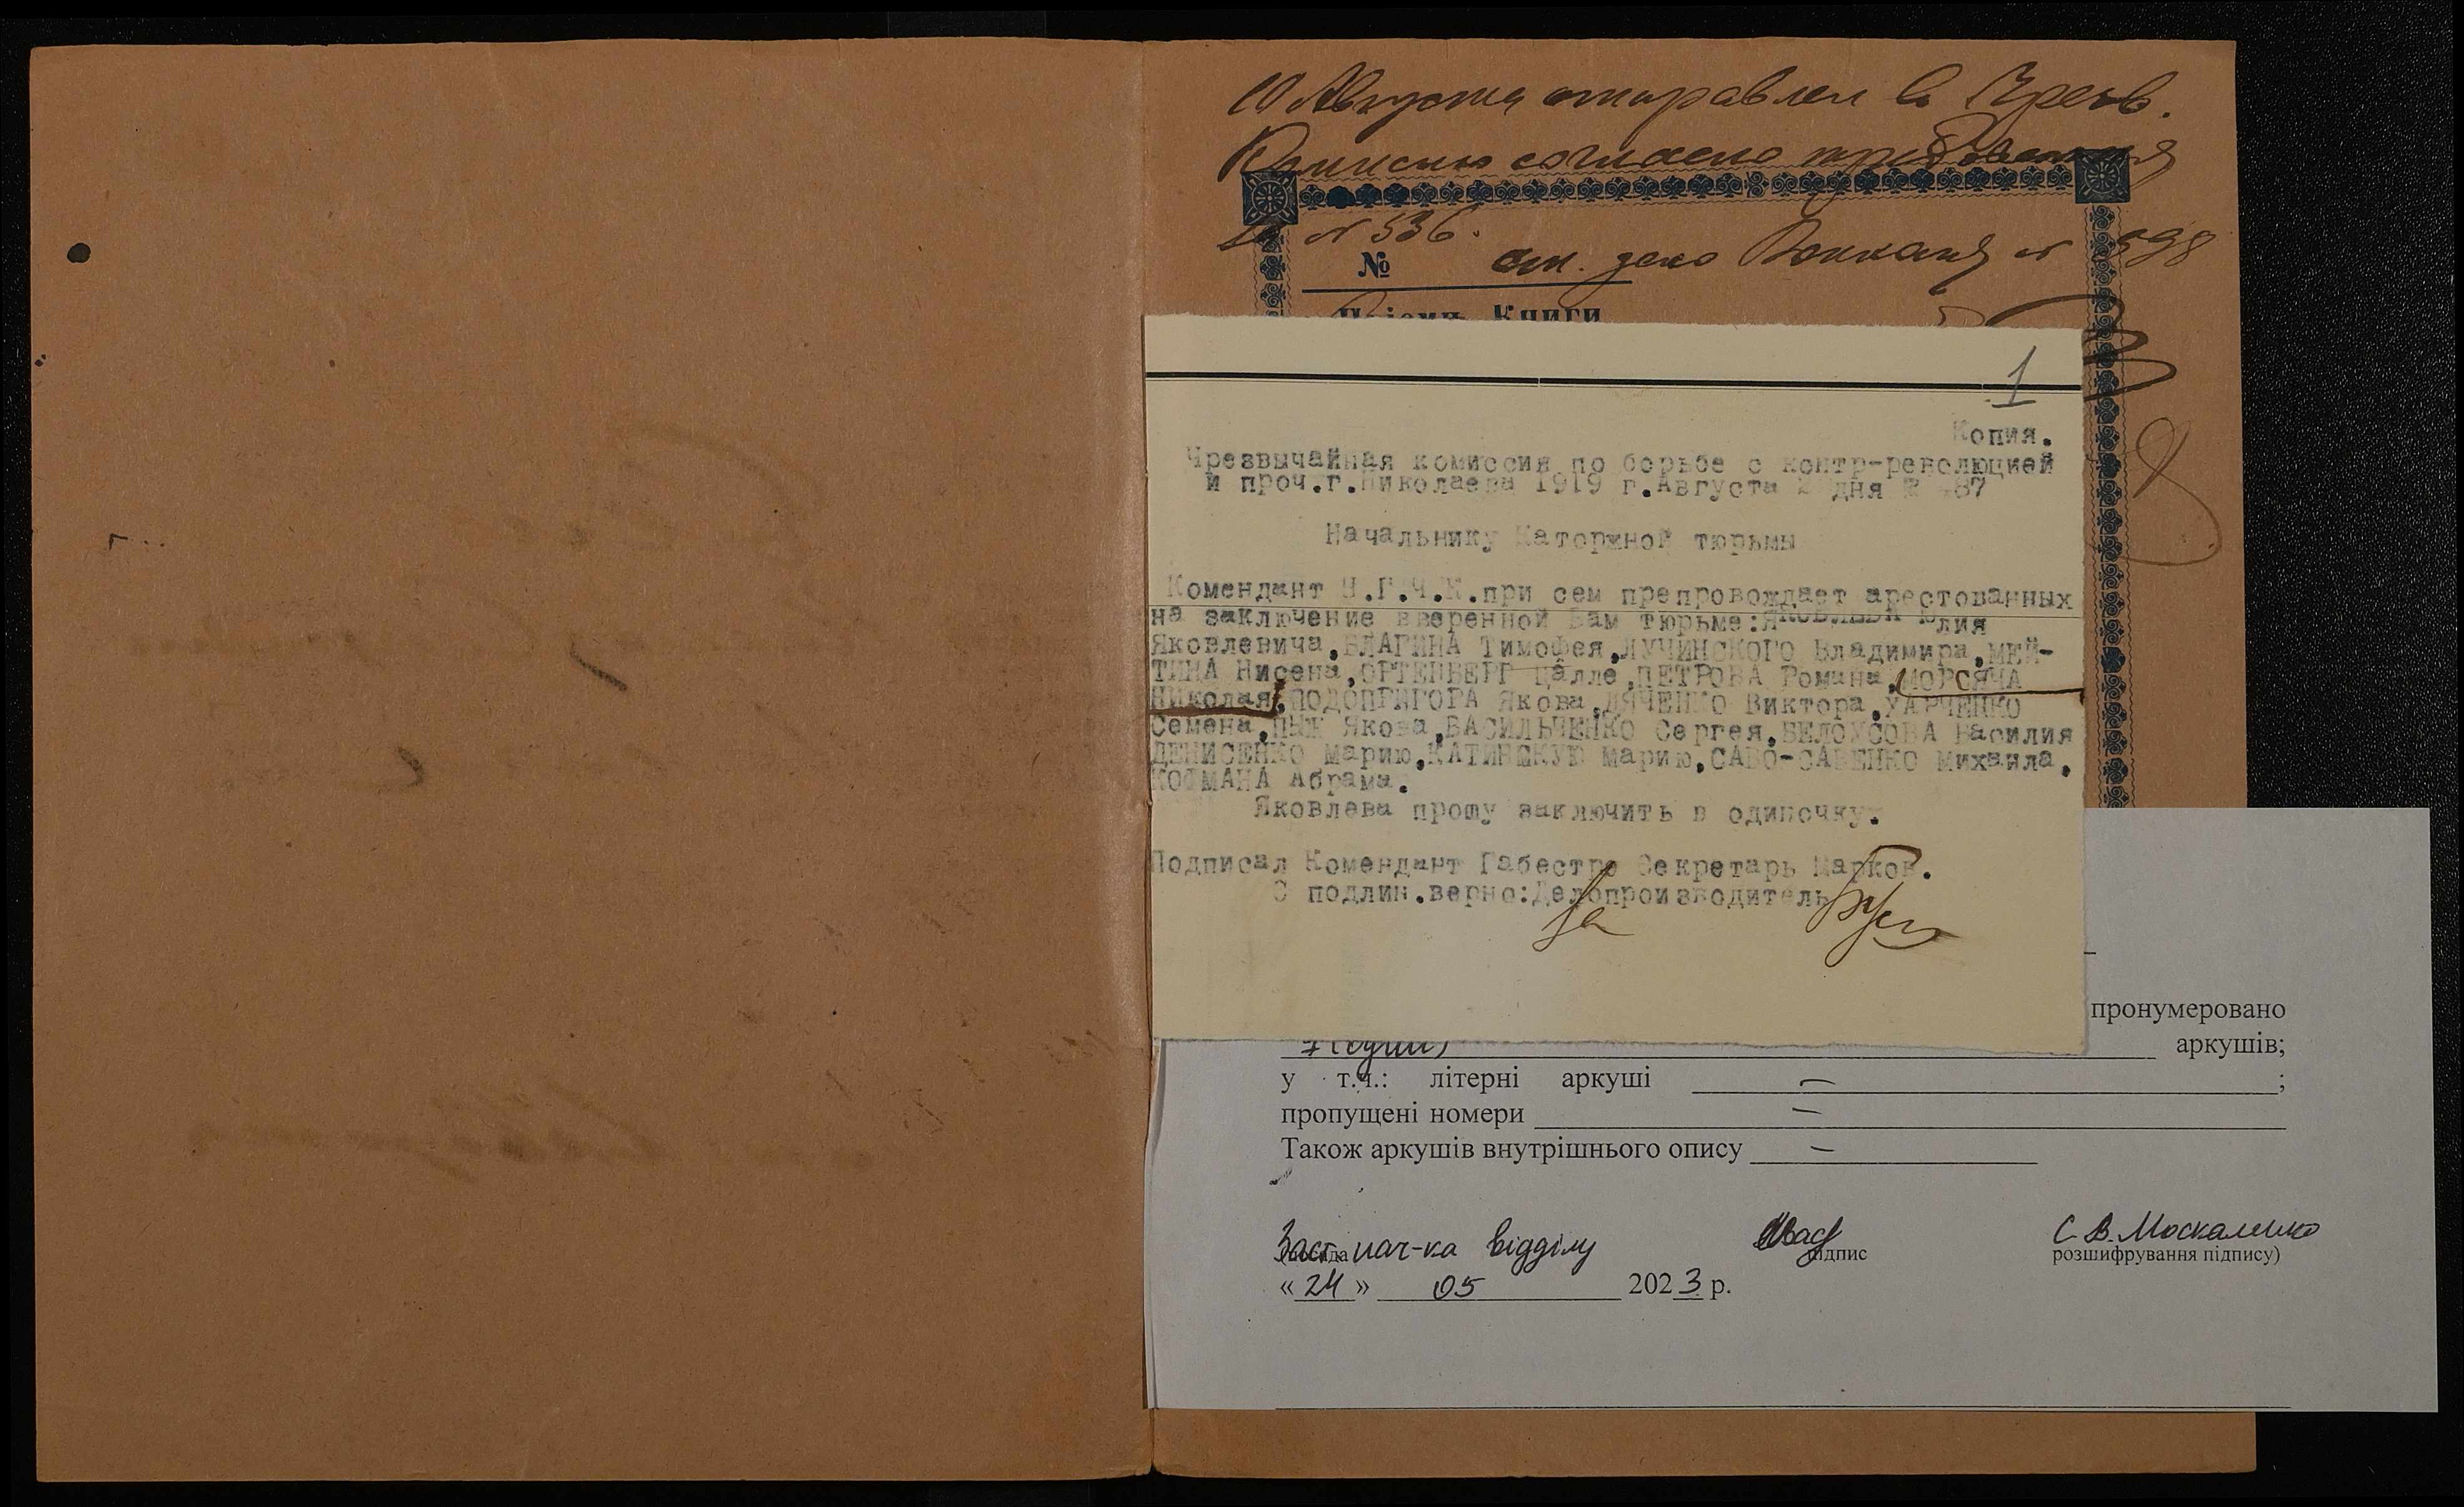 10 Августа отправлен в Чрезв.
Комисию согласно требования
за № 536.
№
см. дело Воккаля № 598
Пріемн. Книги
1
Копия.
Чрезвычайная комиссия по борьбе с контр-революцией
и проч.г.Николаева 1919 г.Августа 2 дня № 487
Начальнику Каторжной тюрьмы
Комендант Н.Г.Ч.К.при сем препровождает арестованных
на заключение вверенной Вам тюрьме:ЯКОВЛЕВА Юлия
Яковлевича,ЕЛАГИНА Тимофея,ЛУЧИНСКОГО Владимира,МЕЙ-
ТИНА Нисена,ОРТЕНБЕРГ Цалле,ПЕТРОВА Романа,МОРСЯЧА
Николая,ПОДОПРИГОРА Якова,ДЯЧЕНКО Виктора,ХАРЧЕНКО
Семена,ПЫЖ Якова,ВАСИЛЬЧЕНКО Сергея,БЕЛОУСОВА Василия
ДЕНИСЕНКО Марию,КАТИНСКУЮ Марию,САВО-САВЕНКО Михаила,
КОФМАНА Абрама.
Яковлева прошу заключить в одиночку.
Подписал Комендант Габестро Секретарь Марков.
С подлин.верно:Делопроизводитель
За
пронумеровано
1 (один) аркушів;
у т.ч.: літерні аркуші — ;
пропущені номери —
Також аркушів внутрішнього опису —
Заст нач-ка відділу С.В. Москаленко
(посада підпис розшифрування підпису)
« 24 » 05 2023 р.